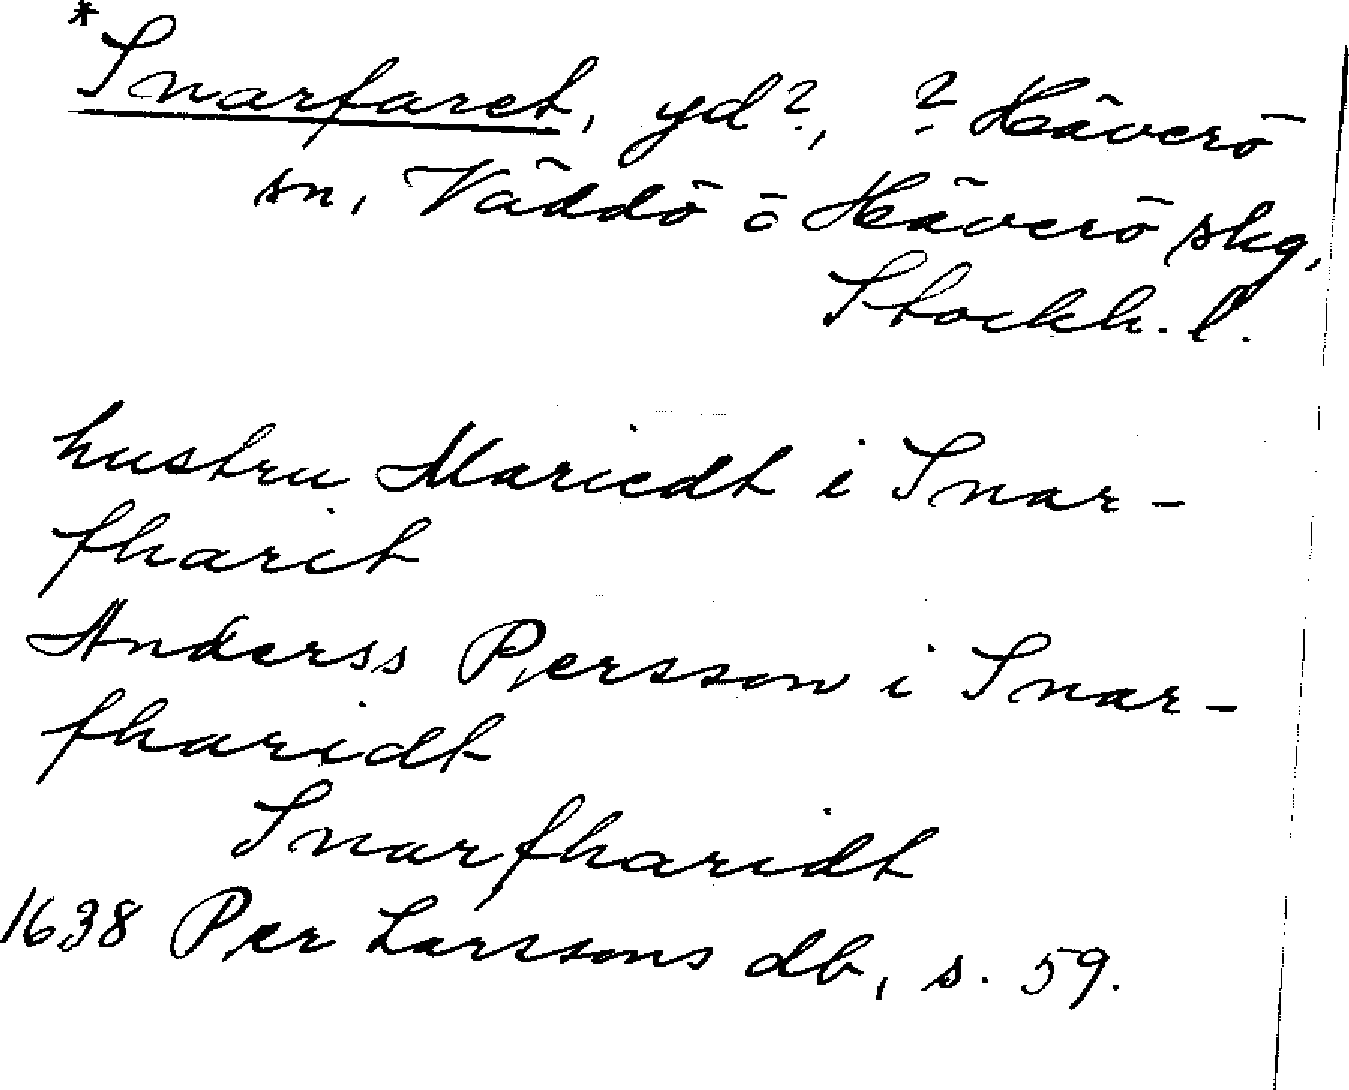 *Snarfaret, yd?, ? Häverö
sn, Väddö o Häverö skg,
Stockh. l.
hustru Mariedt i Snar-
fharit
Anderss Persson i Snar-
fharidt
Snarfharidt
1638 Per Larssons db, s. 59.